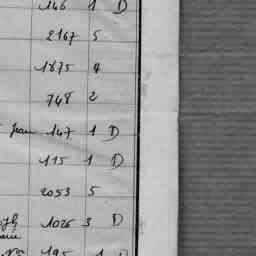 146 1 D
2167 5
1875 4
748 2
147 1 D
115 1 D
2053 5
1026 3 D
195 1 D